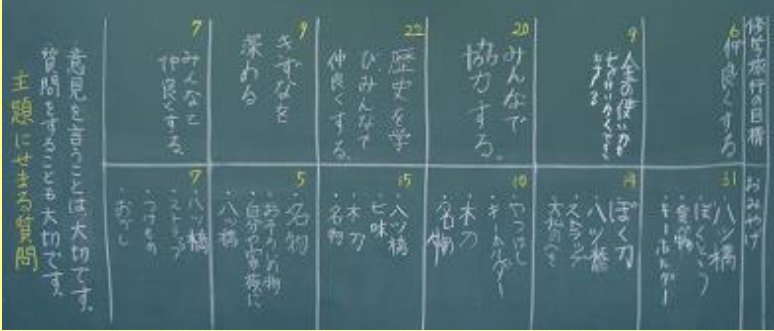 修学旅行の目標
おみやげ
6
仲良くする
31
八ツ橋
ぼくとう
食べ物
キーホルダー
9
金の使い方を
19
ぼく刀
八ツ橋
ストラップ
20
みんなで
協力する。
10
やつはし
キーホルダー
木刀
名物
22
歴史を学
びみんなで
仲良くする。
15
八ツ橋
七味
木刀
名物
9
きずなを
深める
5
名物
自分や家族に
八ツ橋
7
みんなと
仲良くする。
7
八ツ橋
ストラップ
つけもの
おかし
意見を言うことは、大切です。
質問をすることも大切です。
主題にせまる質問